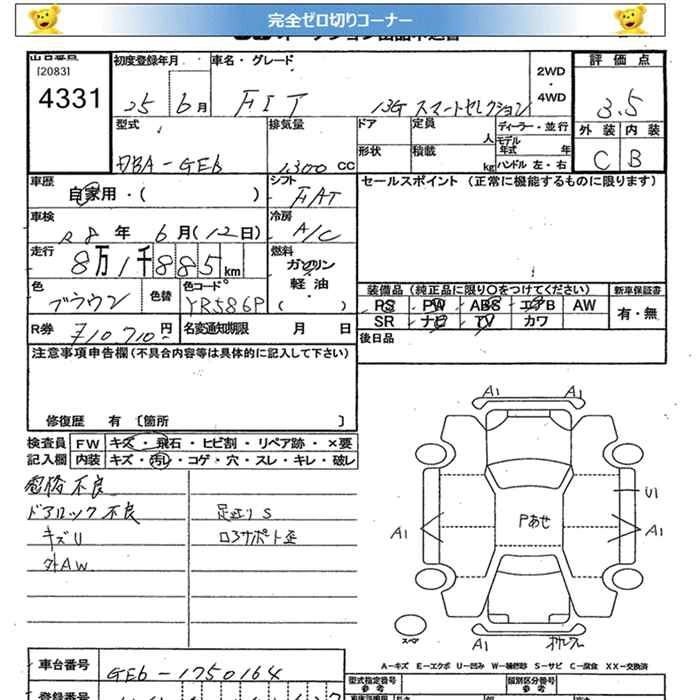 完全ゼロ切りコーナー
[2083]
4331
初度登録年月
25 6月
車名・グレード
FIT 13G スマートセレクション
2WD
・
4WD
評価点
3.5
外装 内装
C B
型式
DBA-GE6
排気量
1,300 cc
ドア
定員 人
ディーラー・並行
モデル年式 年
形状
積載 kg
ハンドル 左・右
車歴
自家用・( )
シフト
FAT
セールスポイント (正常に機能するものに限ります)
車検
R8年 6月(12日)
冷房
A/C
走行
8万1千885km
燃料
ガソリン
軽油・
( )
色
ブラウン
色替
色コード
YR586P
装備品(純正品に限り○をつけてください)
新車保証書
PS PW ABS エアB AW
SR ナビ TV カワ
有・無
R券
¥10,710円
名変通知期限 月 日
後日品
注意事項申告欄(不具合内容等は具体的に記入して下さい)
修復歴 有 〔箇所 〕
検査員
記入欄
FW キズ・飛石・ヒビ割・リペア跡・×要
内装 キズ・汚れ・コゲ・穴・スレ・キレ・破レ
不良
ドアロック不良
キズU
外AW
足廻りS
ロアサポート歪
A1 A1
U1
A1 A1
Pあせ
A1
スペア
A-キズ E-エクボ U-凹み W-補修跡 S-サビ C-腐食 XX-交換済
車台番号
GE6-1750164
型式指定番号
参考
類別区分番号
参考
登録番号